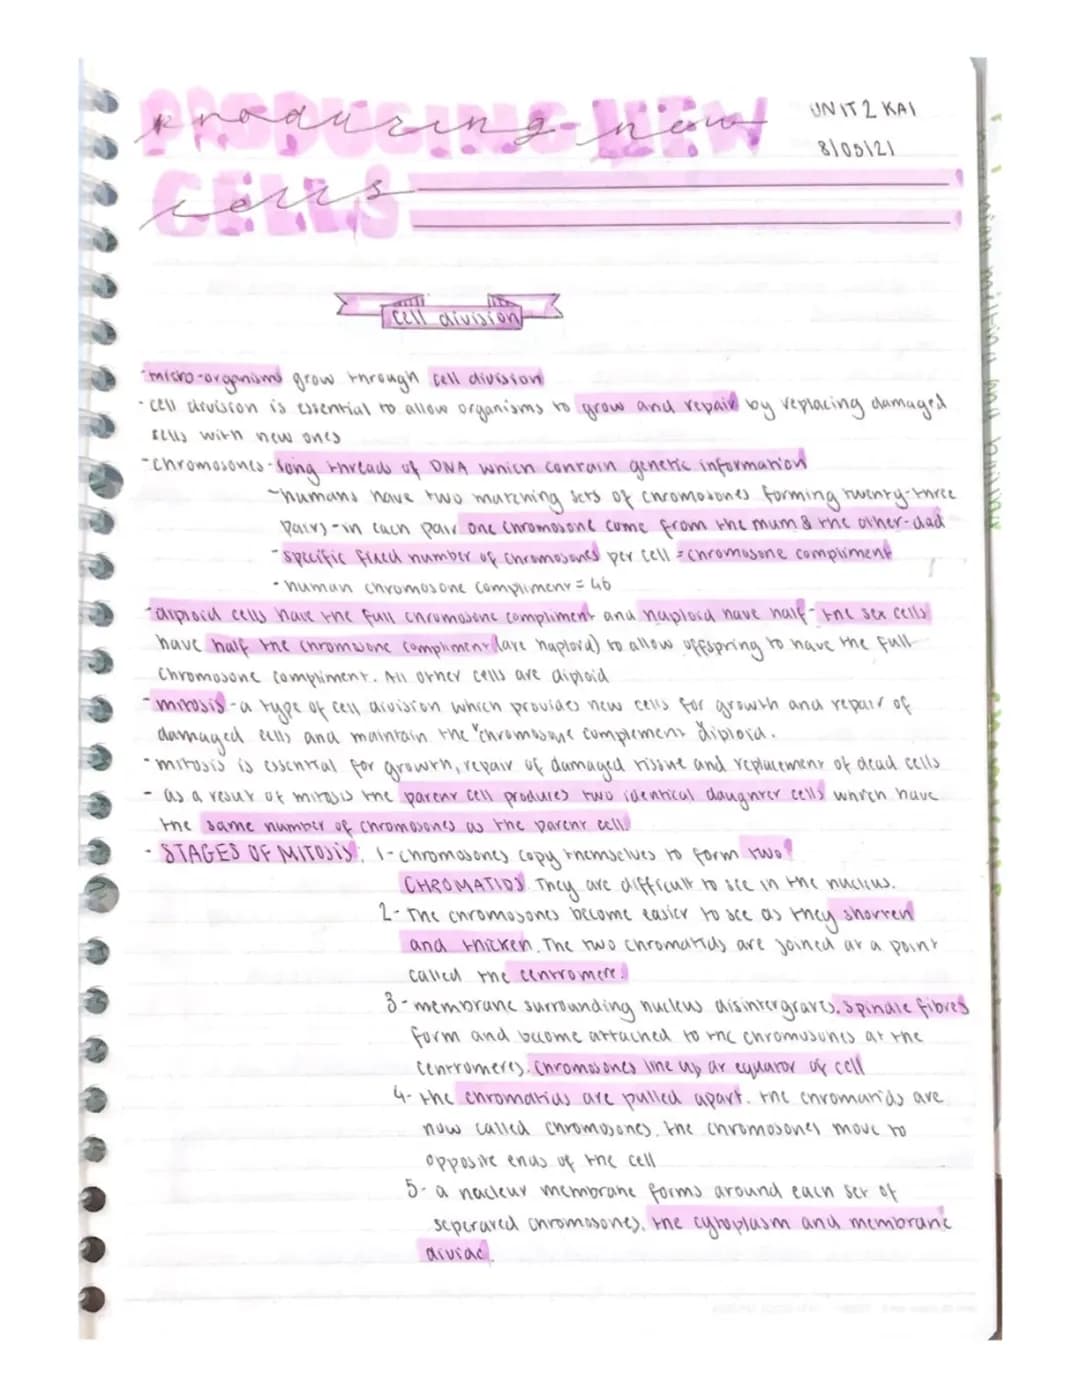 PRODUCING NEW
producing new
UNIT 2 KA1
8/05/21
CELLS
cells
cell division
-micro-organisms grow through cell division
- cell division is essential to allow organisms to grow and repair by replacing damaged
cells with new ones
-chromosones-long threads of DNA which contain genetic information
-humans have two matching sets of chromosones forming twenty-three
pairs-in each pair one chromosone come from the mum & the other-dad
-specific fixed number of chromosones per cell = chromosone compliment
-human chromosone compliment = 46
-diploid cells have the full chromosone compliment and haploid have half- the sex cells
have half the chromosone compliment (are haploid) to allow offspring to have the full
chromosone compliment. All other cells are diploid
-mitosis-a type of cell division which provides new cells for growth and repair of
damaged cells and maintain the "chromosone complement diploid.
-mitosis is essential for growth, repair of damaged tissue and replacement of dead cells
- as a result of mitosis the parent cell produces two identical daughter cells which have
the same number of chromosones as the parent cell
- STAGES OF MITOSIS. 1-chromosones copy themselves to form two
CHROMATIDS. They are difficult to see in the nucleus.
2-The chromosones become easier to see as they shorten
and thicken. The two chromatids are joined at a point
called the centromere.
3-membrane surrounding nucleus disintergrates. Spindle fibres
form and become attached to the chromosones at the
centromeres. Chromosones line up at equator of cell
4-the chromatids are pulled apart. the chromatids are
now called chromosones. the chromosones move to
opposite ends of the cell
5- a nacleur membrane forms around each set of
seperated chromosones. the cytoplasm and membrane
divide.